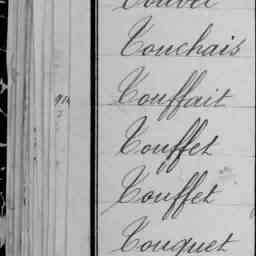 Touchais
914 Touffait
Touffet
Touffet
Touquet